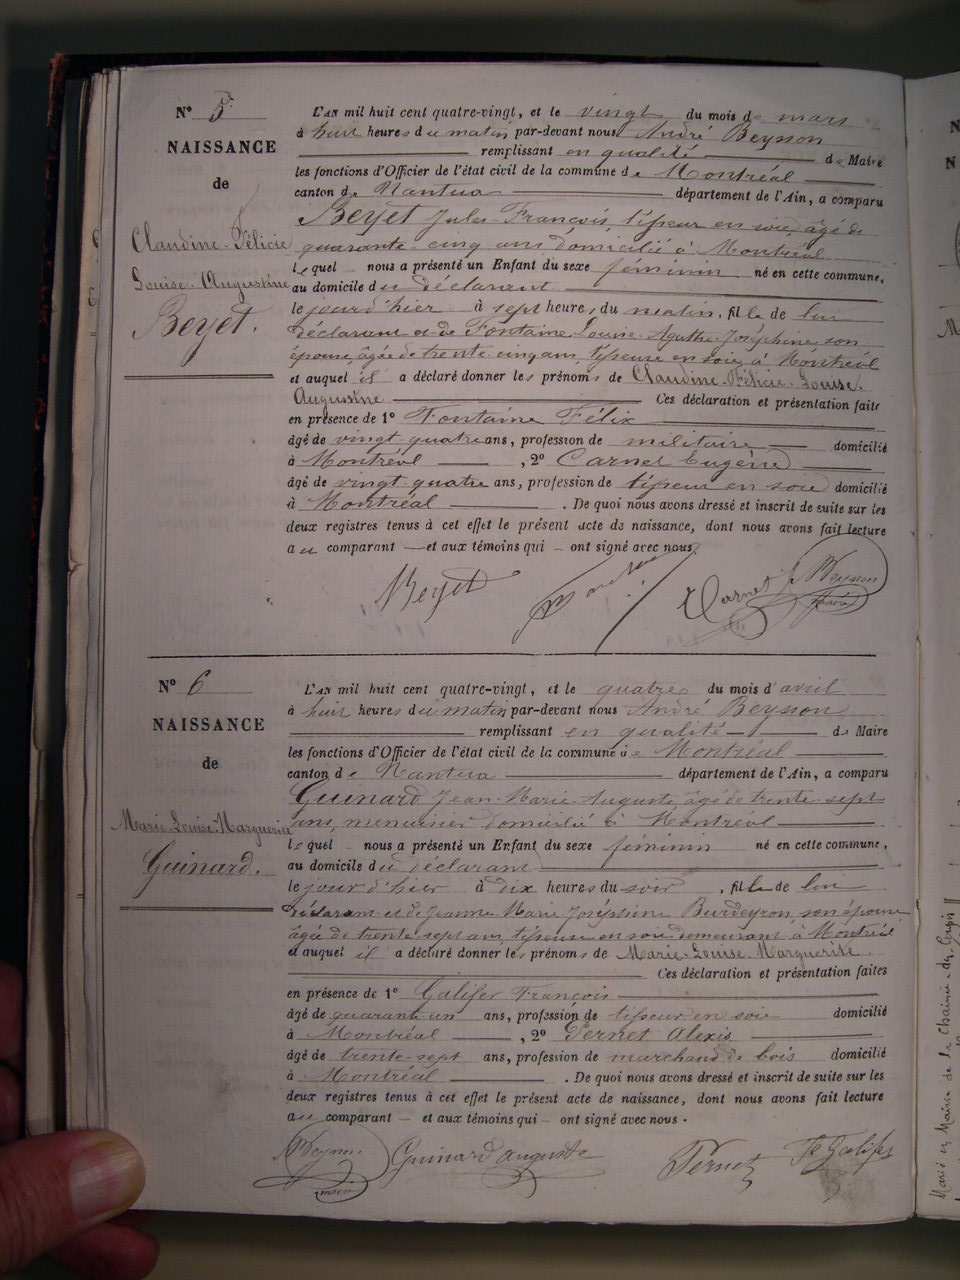 N° 5
NAISSANCE
de
Claudine-Félicie
Louise-Augustine
Beyet.
L'AN mil huit cent quatre-vingt, et le vingt du mois de mars
à huit heures du matin par-devant nous André Beysson
remplissant en qualité de Maire
les fonctions d'Officier de l'état civil de la commune de Montréal
canton de Nantua département de l'Ain, a comparu
Beyet Jules François, tisseur en soie, âgé de
quarante-cinq ans domicilié à Montréal
lequel nous a présenté un Enfant du sexe féminin né en cette commune,
au domicile du déclarant
le jour d'hier à sept heures, du matin, fille de lui
déclarant et de Fontaine Louise-Agathe-Joséphine son
épouse, âgée de trente-cinq ans, tisseuse en soie, à Montréal
et auquel il a déclaré donner les prénoms de Claudine-Félicie-Louise.
Augustine Ces déclaration et présentation faites
en présence de 1° Fontaine Félix
âgé de vingt quatre ans, profession de militaire domicilié
à Montréal , 2° Carnet Eugène
âgé de vingt quatre ans, profession de tisseur en soie domicilié
à Montréal . De quoi nous avons dressé et inscrit de suite sur les
deux registres tenus à cet effet le présent acte de naissance, dont nous avons fait lecture
au comparant et aux témoins qui ont signé avec nous.
Beyet Carnet Beysson
maire
N° 6
NAISSANCE
de
Marie-Louise-Marguerite
Guinard.
L'AN mil huit cent quatre-vingt, et le quatre du mois d'avril
à huit heures du matin par-devant nous André Beysson
remplissant en qualité de Maire
les fonctions d'Officier de l'état civil de la commune de Montréal
canton de Nantua département de l'Ain, a comparu
Guinard Jean-Marie-Auguste, âgé de trente-sept
ans, menuisier domicilié à Montréal
lequel nous a présenté un Enfant du sexe féminin né en cette commune,
au domicile du déclarant
le jour d'hier à dix heures du soir , fille de lui
déclarant et de Jeanne-Marie Joséphine Burdeyron, son épouse
âgée de trente sept ans, tisseuse en soie demeurant à Montréal
et auquel il a déclaré donner les prénoms de Marie-Louise-Marguerite.
Ces déclaration et présentation faites
en présence de 1° Galifer François
âgé de quarante-un ans, profession de tisseur en soie domicilié
à Montréal , 2° Pernet Alexis
âgé de trente-sept ans, profession de marchand de bois domicilié
à Montréal . De quoi nous avons dressé et inscrit de suite sur les
deux registres tenus à cet effet le présent acte de naissance, dont nous avons fait lecture
au comparant et aux témoins qui ont signé avec nous.
Beysson Guinard auguste Pernet Galifer
maire